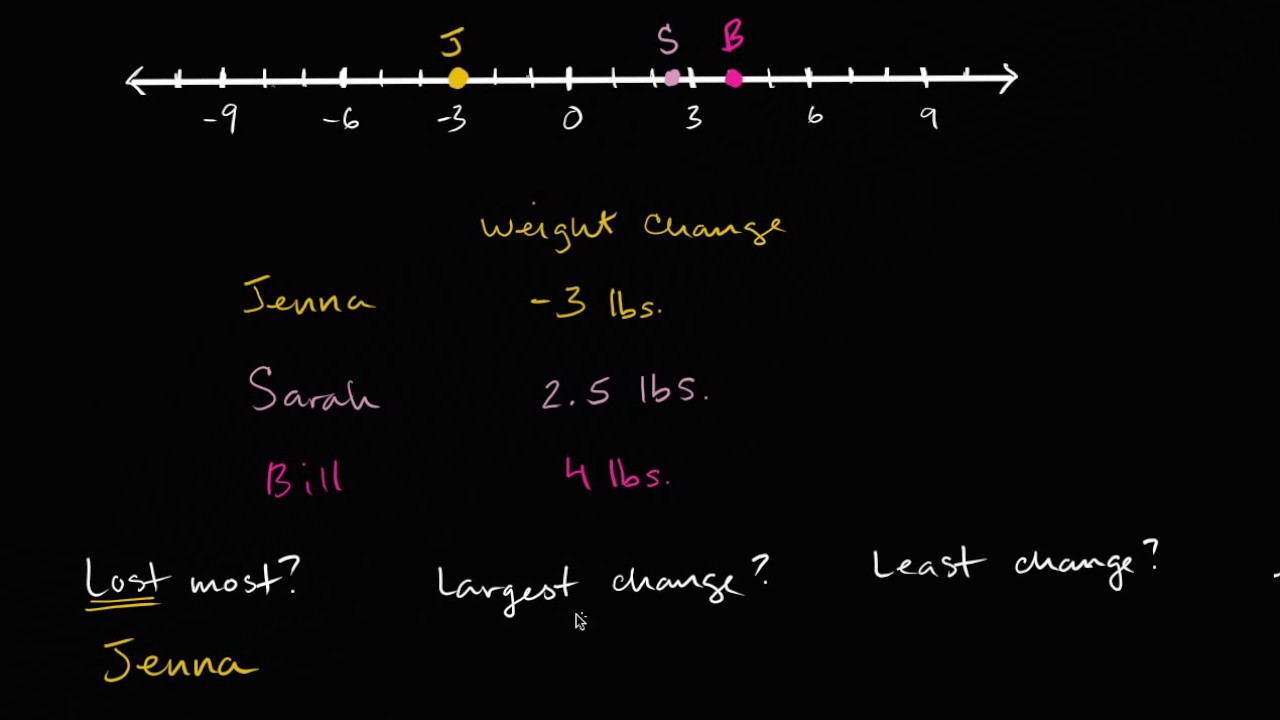 J S B
-9 -6 -3 0 3 6 9
Weight Change
Jenna -3 lbs.
Sarah 2.5 lbs.
Bill 4 lbs.
Lost most? Largest change? Least change?
Jenna